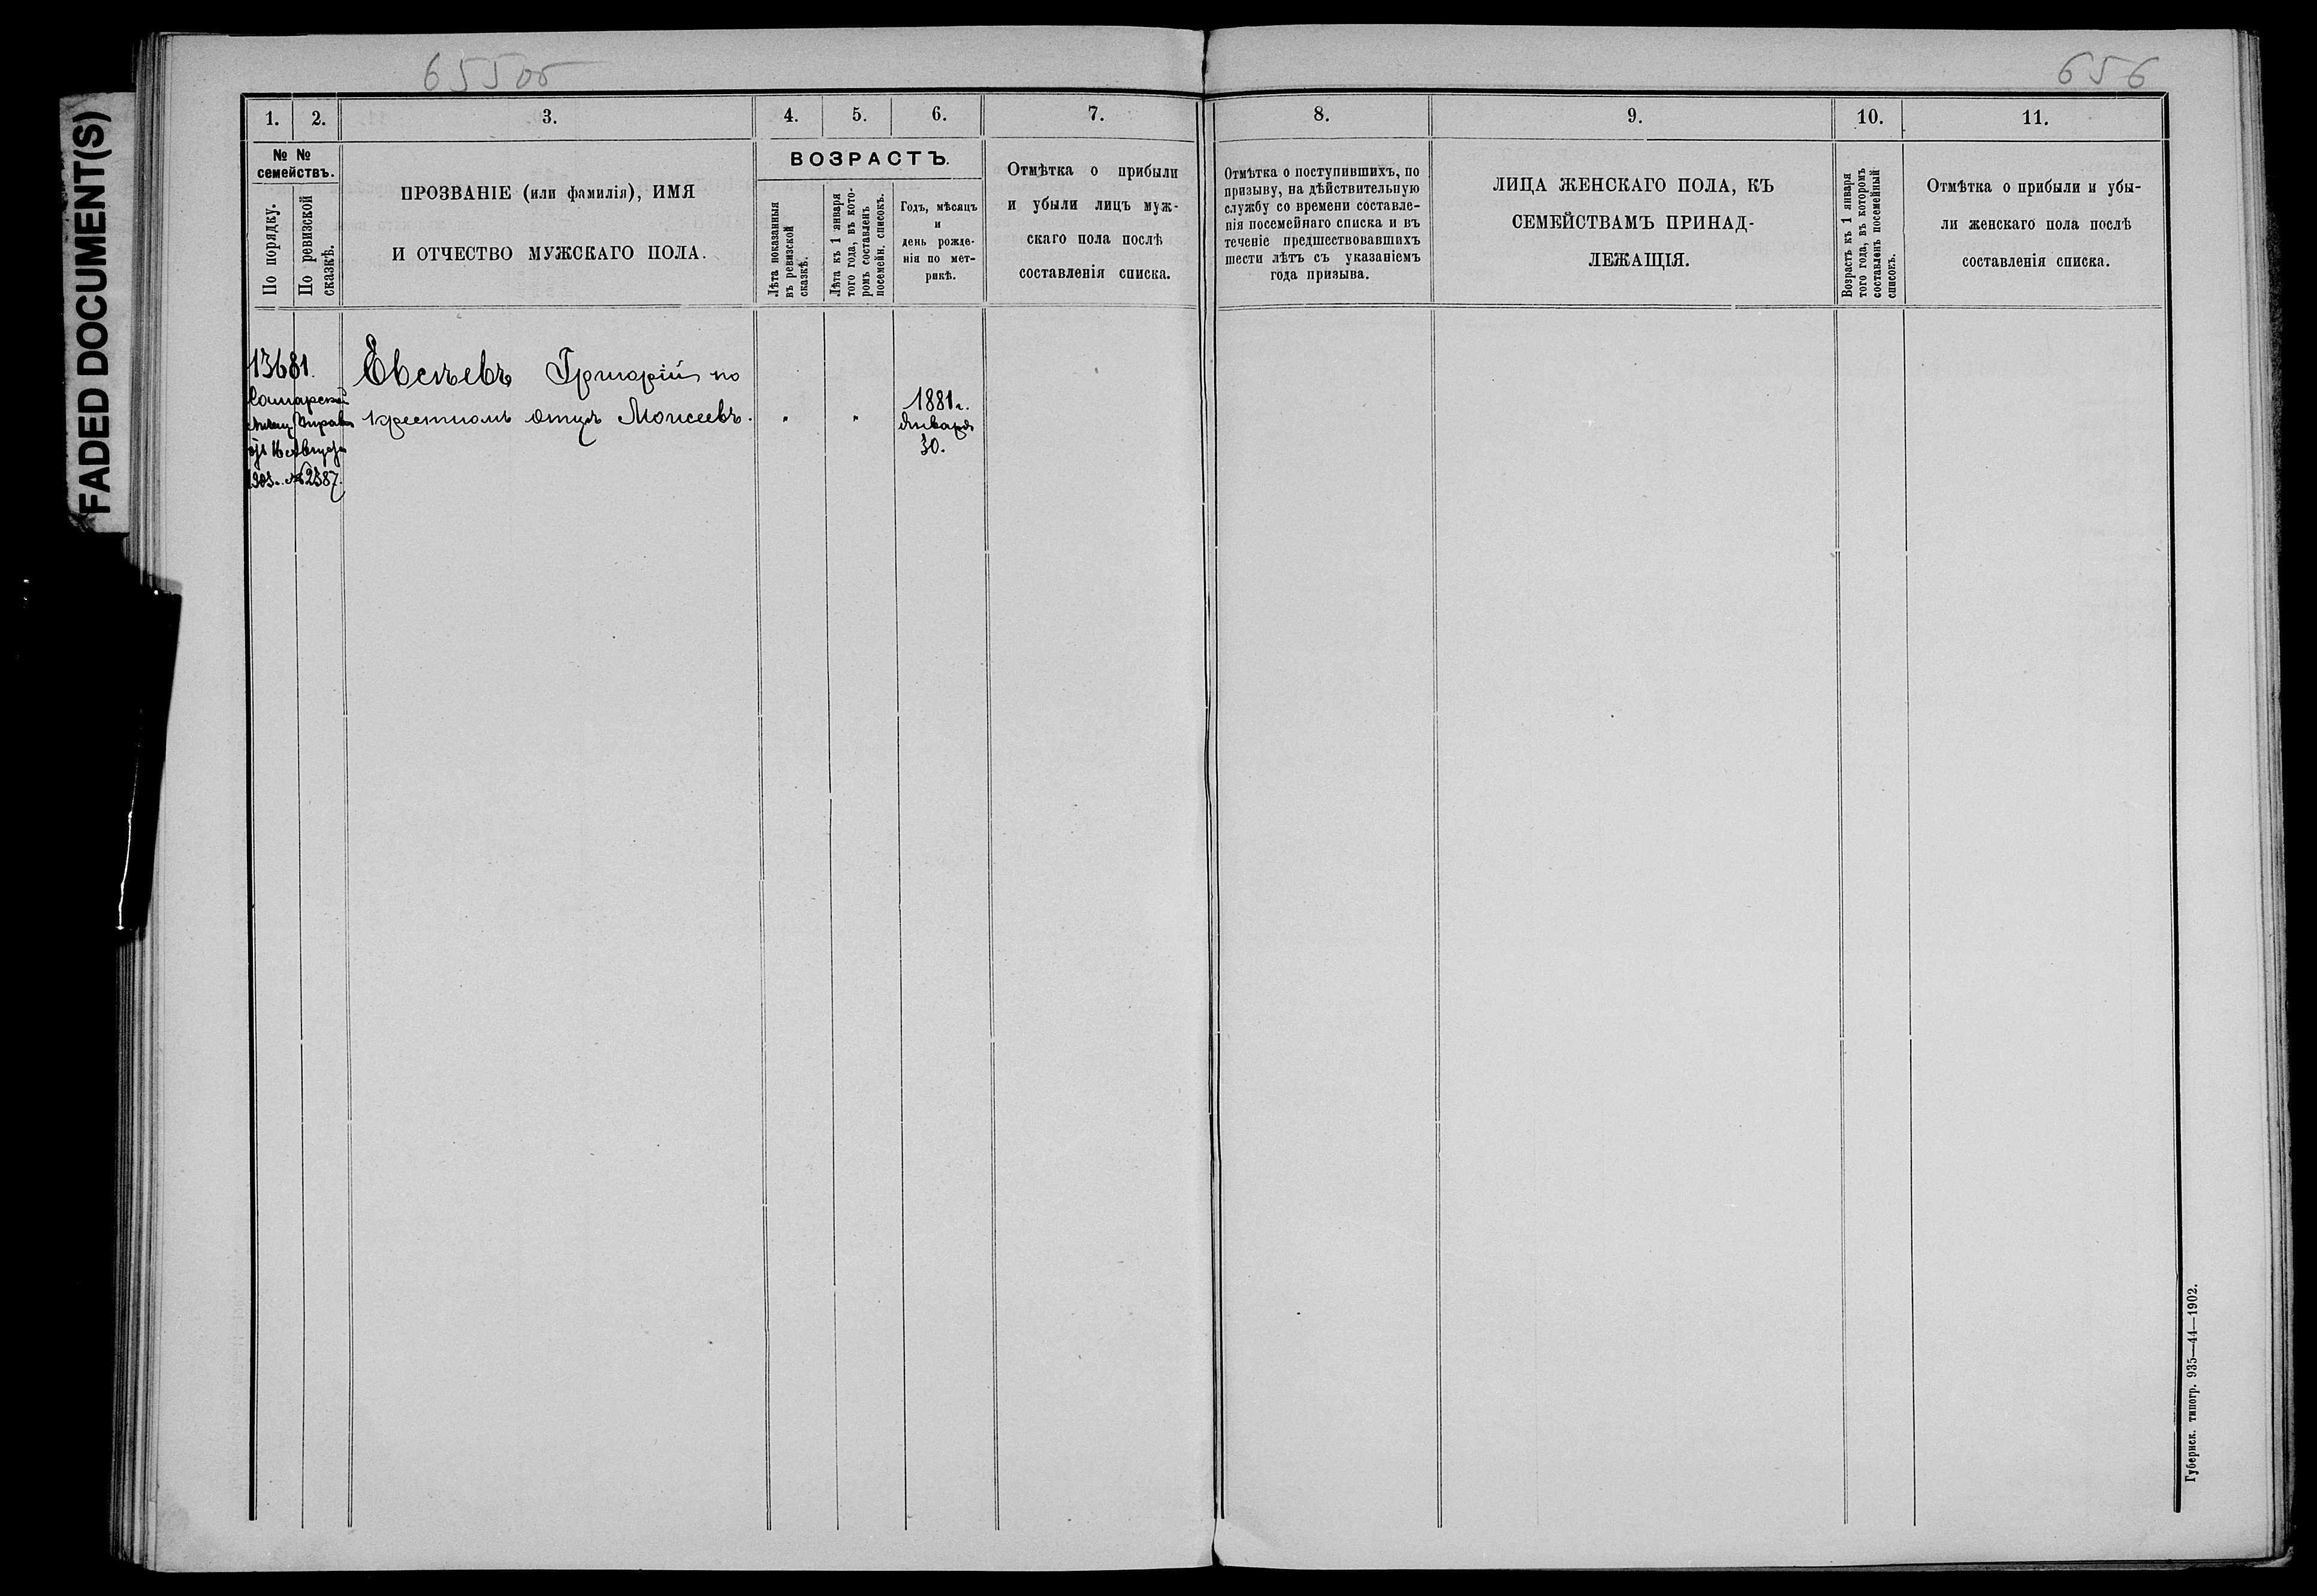 FADED DOCUMENT(S)
655об
656
1. 2. 3. 4. 5. 6. 7. 8. 9. 10. 11.
№ №
семействъ.
По порядку.
По ревизской
сказкѣ.
ПРОЗВАНІЕ (или фамилія), ИМЯ
И ОТЧЕСТВО МУЖСКАГО ПОЛА.
ВОЗРАСТЪ.
Лѣта показанныя
въ ревизской
сказкѣ.
Лѣта къ 1 января
того года, въ кото-
ромъ составленъ
посемейн. списокъ.
Годъ, мѣсяцъ
и
день рожде-
нія по мет-
рикѣ.
Отмѣтка о прибыли
и убыли лицъ муж-
скаго пола послѣ
составленія списка.
Отмѣтка о поступившихъ, по
призыву, на дѣйствительную
службу со времени составле-
нія посемейнаго списка и въ
теченіе предшествовавшихъ
шести лѣтъ съ указаніемъ
года призыва.
ЛИЦА ЖЕНСКАГО ПОЛА, КЪ
СЕМЕЙСТВАМЪ ПРИНАД-
ЛЕЖАЩІЯ.
Возрастъ къ 1 января
того года, въ которомъ
составленъ посемейный
списокъ.
Отмѣтка о прибыли и убы-
ли женскаго пола послѣ
составленія списка.
13681.
Самарской
Управы
16 Августа
1903г. №2387.
Евсѣевъ Григорій по
крестномъ отцѣ Моисеевъ.
" "
1881г.
Января
30.
Губернск. типогр. 935—44—1902.